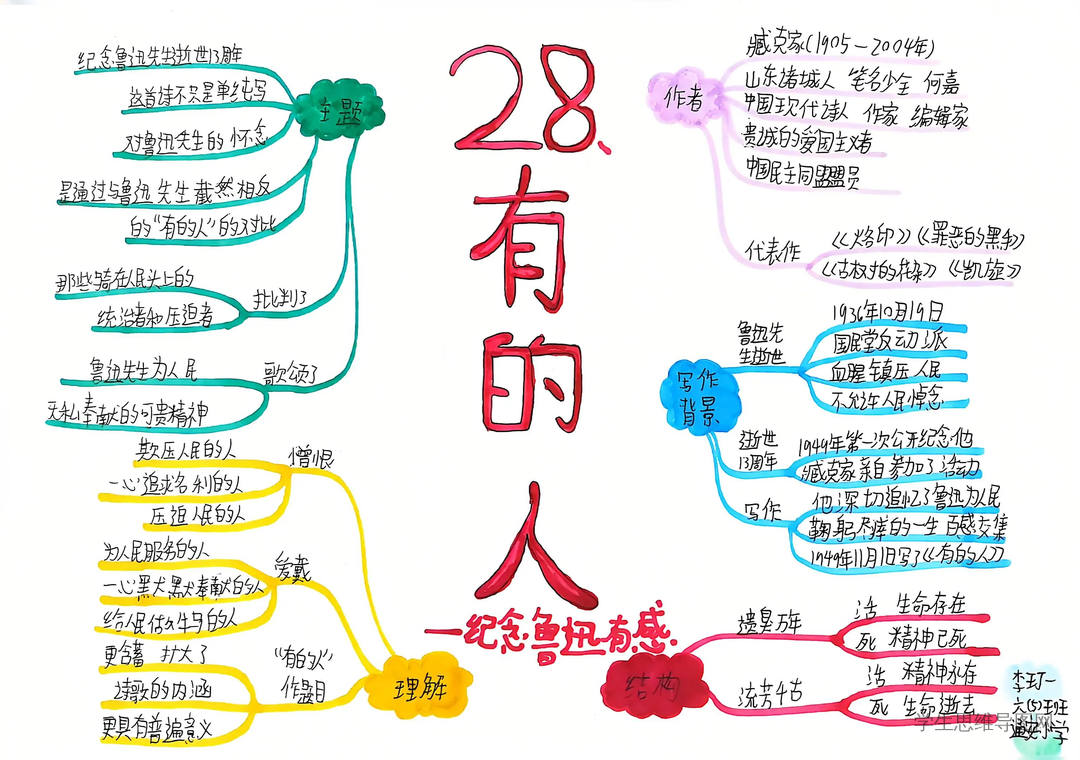 28、有的人
—纪念鲁迅有感
主题
纪念鲁迅先生逝世13周年
这首诗不只是单纯写
对鲁迅先生的怀念
是通过与鲁迅先生截然相反
的“有的人”的对比
批判了
那些骑在人民头上的
统治者和压迫者
歌颂了
鲁迅先生为人民
无私奉献的可贵精神
作者
臧克家(1905—2004年)
山东诸城人 笔名少全 何嘉
中国现代诗人 作家 编辑家
贵诚的爱国主义者
中国民主同盟盟员
代表作
《烙印》《罪恶的黑手》
《古树的花朵》《凯旋》
写作
背景
鲁迅先
生逝世
1936年10月19日
国民党反动派
血腥镇压人民
不允许人民悼念
逝世
13周年
1949年第一次公开纪念他
臧克家亲自参加了活动
写作
他深切追忆了鲁迅为人民
鞠躬尽瘁的一生 百感交集
1949年11月1日写了《有的人》
理解
憎恨
欺压人民的人
一心追求名利的人
压迫人民的人
爱戴
为人民服务的人
一心默默奉献的人
给人民做牛马的人
“有的人”
作题目
更含蓄 扩大了
诗歌的内涵
更具有普遍意义
结构
遗臭万年
活 生命存在
死 精神已死
流芳千古
活 精神永存
死 生命逝去
李玎一
六(5)班
通安小学
学生思维导图网